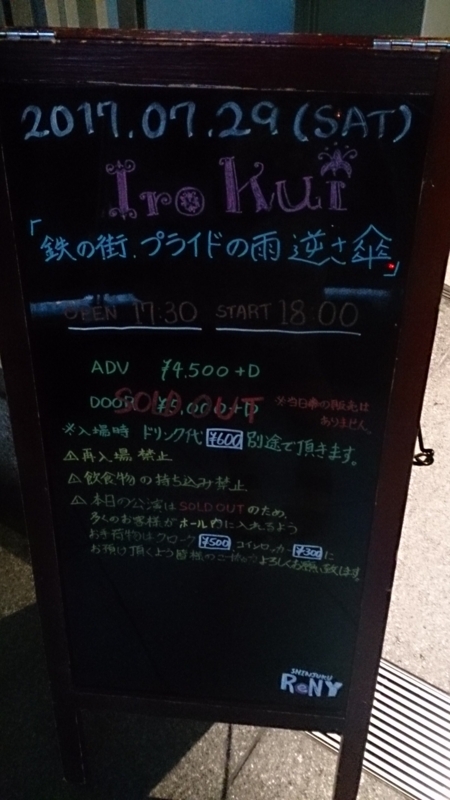 2017.07.29(SAT)
Iro Kui
「鉄の街、プライドの雨 逆さ傘」
OPEN 17:30 START 18:00
ADV ¥4,500+D
DOOR ¥5,000+D SOLD OUT ※当日券の販売は
ありません。
※入場時 ドリンク代 ¥600 別途で頂きます。
⚠再入場 禁止
⚠飲食物の持ち込み禁止
⚠本日の公演はSOLD OUTのため、
多くのお客様がホール内に入れるよう
お手荷物はクローク ¥500、コインロッカー ¥300 に
お預け頂くよう皆様のご協力よろしくお願い致します。
SHINJUKU
ReNY